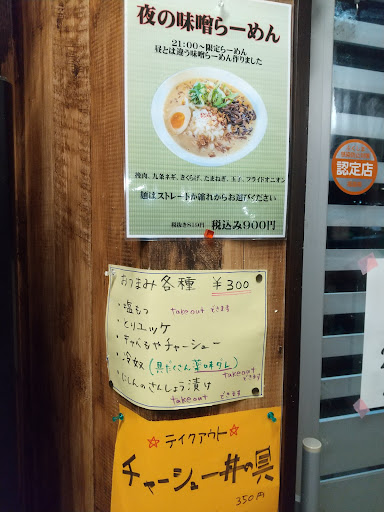 夜の味噌らーめん
21:00～限定らーめん
昼とは違う味噌らーめん作りました
挽肉、九条ネギ、きくらげ、たまねぎ、玉子、フライドオニオン
麺はストレートか縮れからお選びください
税抜き819円 税込み900円
認定店
おつまみ各種 ¥300
・塩もつ takeout できます
・とりユッケ
・キャベもやチャーシュー
・冷奴(具だくさん薬味ダレ)
takeout できます
・にんにくのさんしょう漬け
takeout できます
☆テイクアウト☆
チャーシュー丼の具
350円